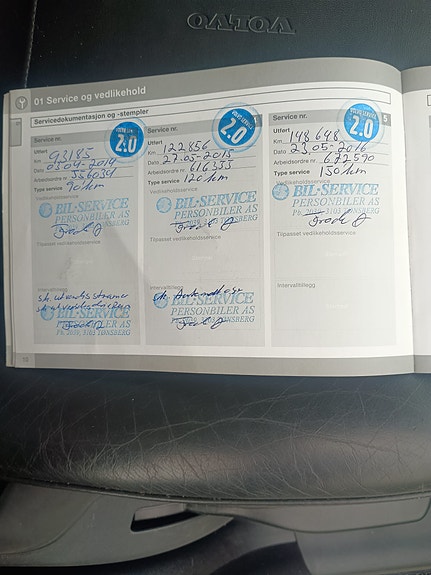 VOLVO
01 Service og vedlikehold
Servicedokumentasjon og -stempler
Service nr.
VOLVO SERVICE
2.0
Utført
Km 93185
Dato 03-04-2014
Arbeidsordre nr. 556034
Type service 90 km
Vedlikeholdsservice
BIL-SERVICE
PERSONBILER AS
Tilpasset vedlikeholdsservice
Intervalltillegg
BIL-SERVICE
PERSONBILER AS
Pb. 2039, 3103 TØNSBERG
Service nr.
2.0
Utført
Km 122856
Dato 27-05-2015
Arbeidsordre nr. 616355
Type service 120 km
Vedlikeholdsservice
BIL-SERVICE
PERSONBILER AS
Tilpasset vedlikeholdsservice
Intervalltillegg
BIL-SERVICE
PERSONBILER AS
3103 TØNSBERG
Service nr.
VOLVO SERVICE
2.0
5
Utført
Km 148648
Dato 23-05-2016
Arbeidsordre nr. 672590
Type service 150 km
Vedlikeholdsservice
BIL-SERVICE
PERSONBILER AS
Pb. 2039, 3103 TØNSBERG
Tilpasset vedlikeholdsservice
Intervalltillegg